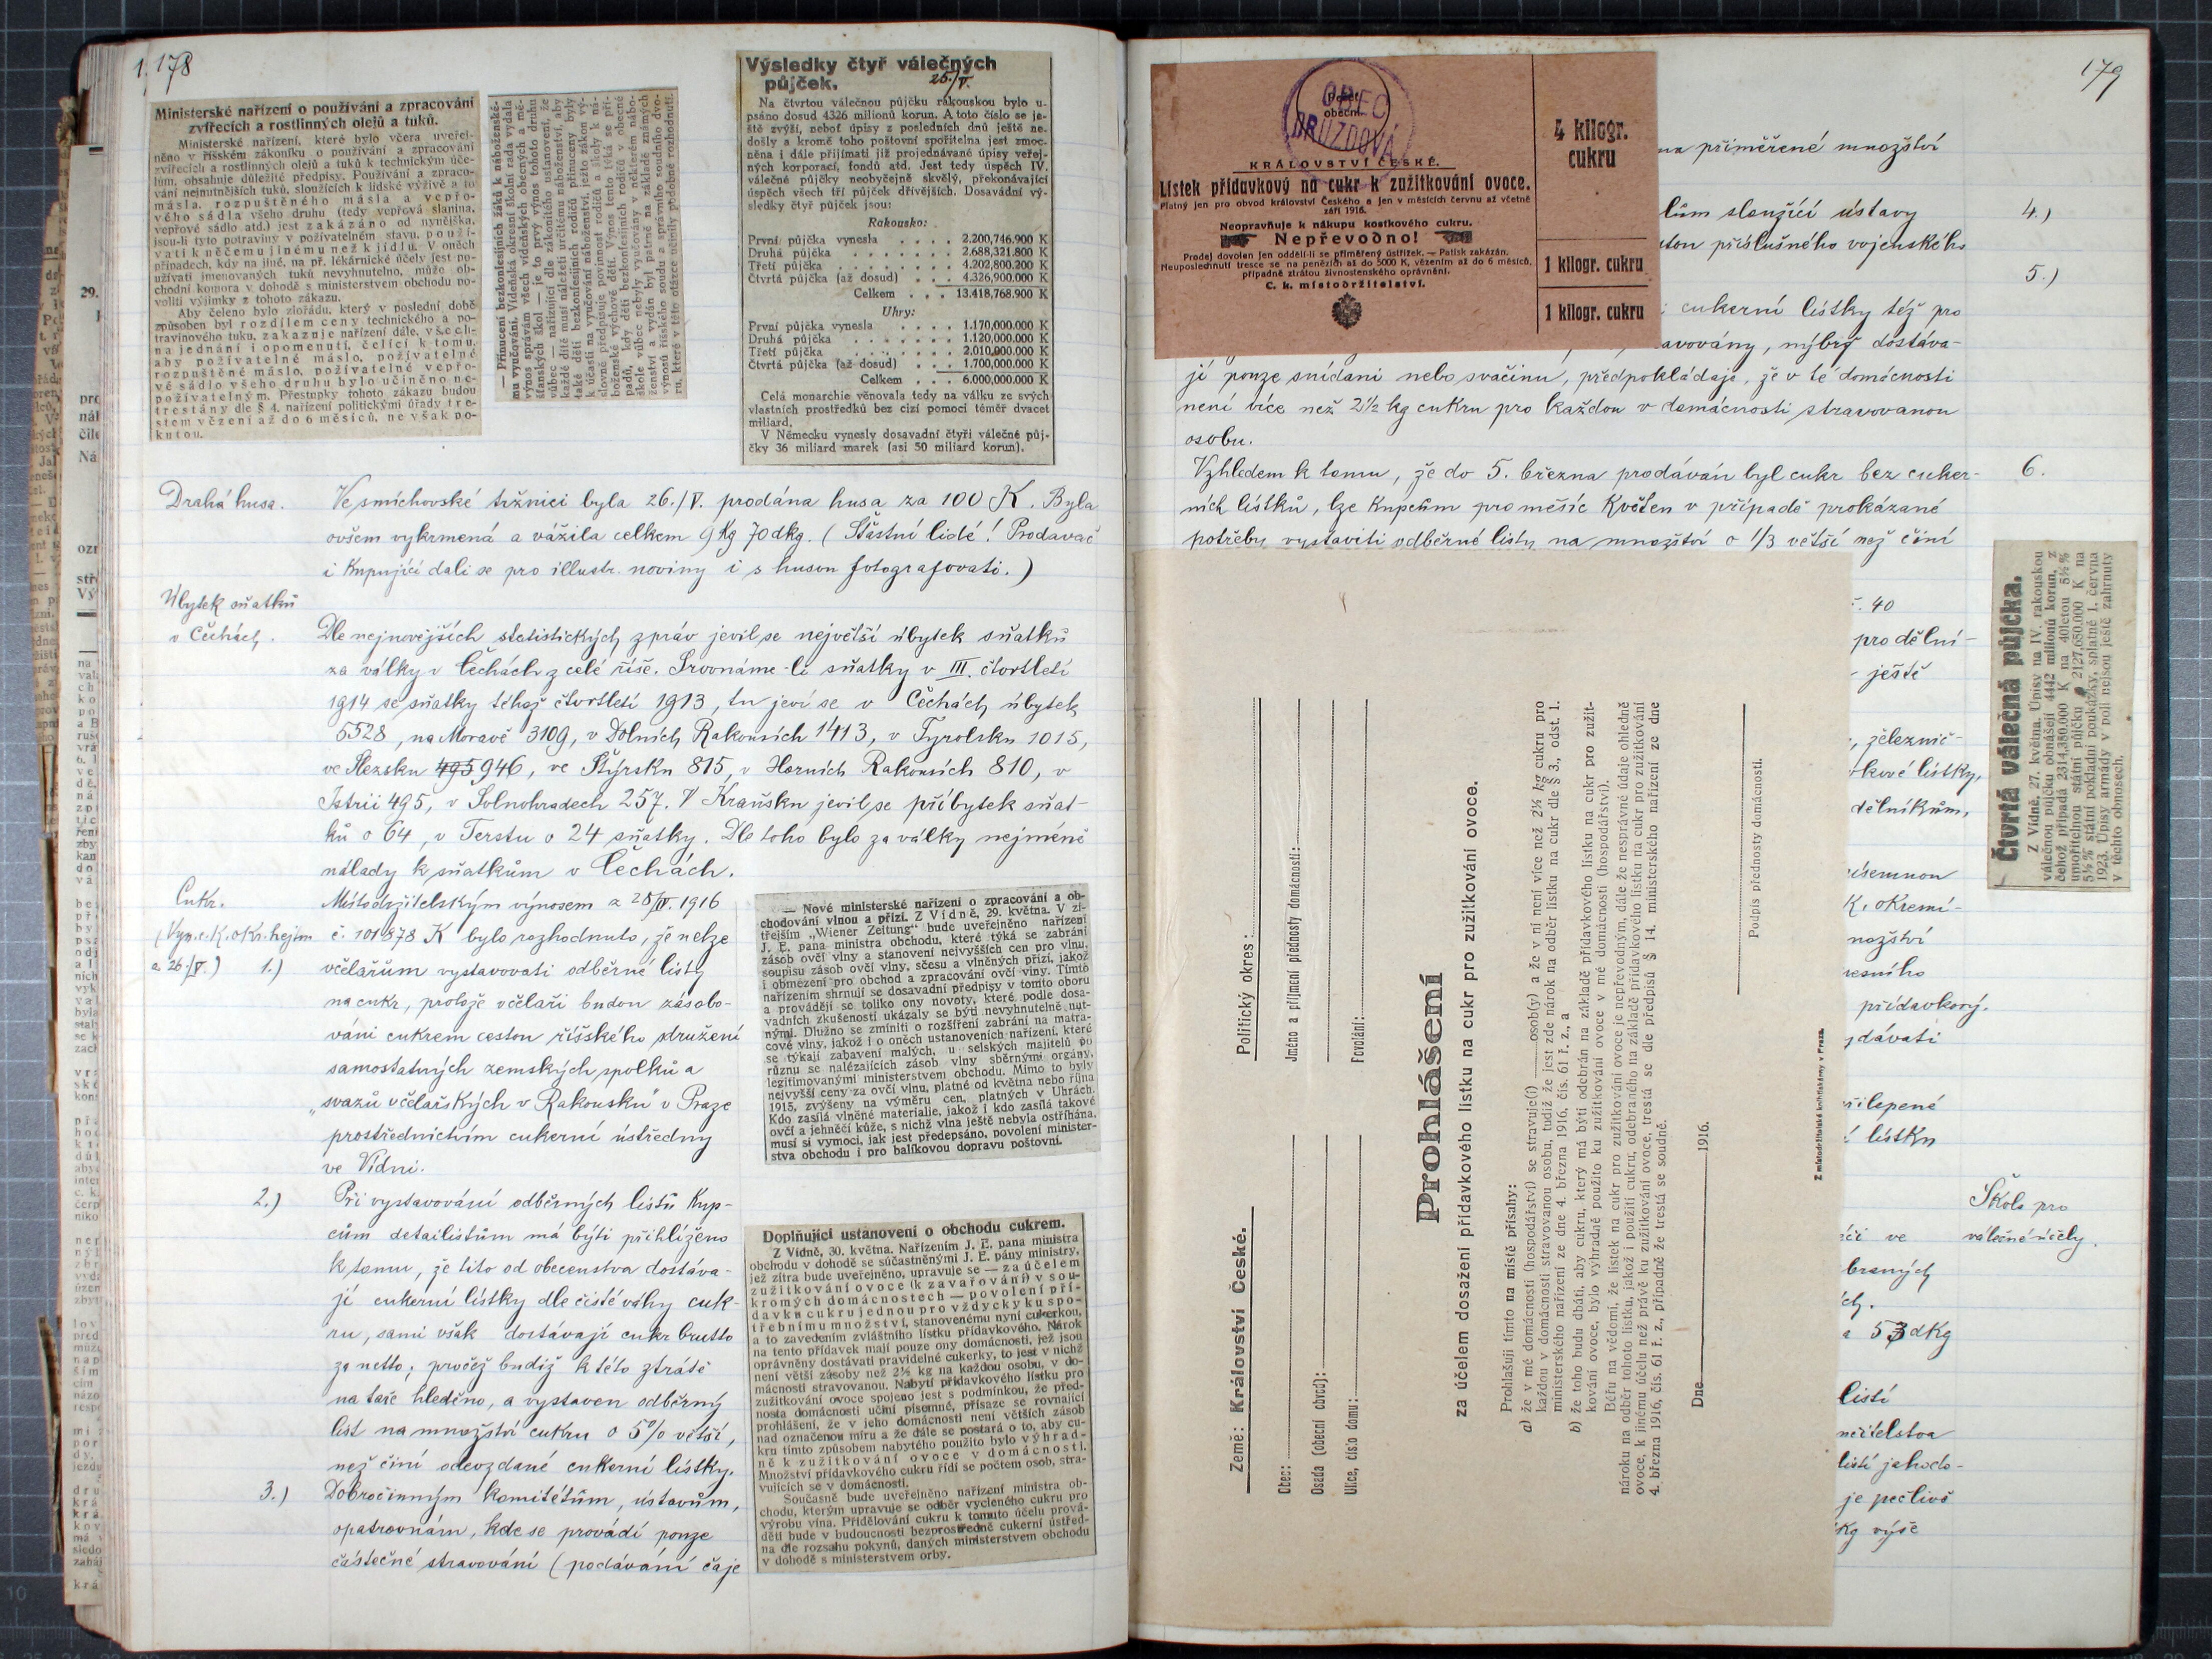 1. 178
Ministerské nařízení o používání a zpracování
zvířecích a rostlinných olejů a tuků.
Ministerské nařízení, které bylo včera uveřej-
něno v říšském zákoníku o používání a zpracování
zvířecích a rostlinných olejů a tuků k technickým úče-
lům, obsahuje důležité předpisy. Používání a zpraco-
vání nejnutnějších tuků, sloužících k lidské výživě a to
másla, rozpuštěného másla a vepřo-
vého sádla všeho druhu (tedy vepřová slanina,
vepřové sádlo atd.) jest zakázáno od nynějška,
jsou-li tyto potraviny v poživatelném stavu, použí-
vati k něčemu jinému než k jídlu. V oněch
případech, kdy na jiné, na př. lékárnické účely jest po-
užívati jmenovaných tuků nevyhnutelno, může ob-
chodní komora v dohodě s ministerstvem obchodu po-
voliti výjimky z tohoto zákazu.
Aby čeleno bylo zlořádu, který v poslední době
způsoben byl rozdílem ceny technického a po-
travinového tuku, zakazuje nařízení dále, všecli-
na jednání i opomenutí, čelící k tomu,
aby poživatelné máslo, poživatelné
rozpuštěné máslo, poživatelné vepřo-
vé sádlo všeho druhu bylo učiněno ne-
poživatelným. Přestupky tohoto zákazu budou
trestány dle § 4. nařízení politickými úřady tre-
stem vězení až do 6 měsíců, ne však po-
kutou.
— Přinucení bezkonfesijních žáků k náboženské-
mu vyučování. Vídeňská okresní školní rada vydala
výnos správám všech vídeňských obecných a mě-
šťanských škol — je to prvý výnos tohoto druhu
vůbec — nařizující dle zákonitého ustanovení, že
každé dítě musí náležeti určitému náboženství, aby
také děti bezkonfesijních rodičů přinuceny byly
k účasti na vyučování náboženství, ježto zákon vý-
slovně předpisuje povinnost rodičů a školy k ná-
boženské výchově dětí. Výnos tento týká se pří-
padů, kdy děti bezkonfesijních rodičů v obecné
škole vůbec nebyly vyučovány v některém nábo-
ženství a vydán byl patrně na základě známých
výnosů říšského soudu a správního soudního dvo-
ru, které v této otázce učinily podobné rozhodnutí.
Výsledky čtyř válečných
půjček.
25./V.
Na čtvrtou válečnou půjčku rakouskou bylo u-
psáno dosud 4326 milionů korun. A toto číslo se je-
ště zvýší, neboť úpisy z posledních dnů ještě ne-
došly a kromě toho poštovní spořitelna jest zmoc-
něna i dále přijímati již projednávané úpisy veřej-
ných korporací, fondů atd. Jest tedy úspěch IV.
válečné půjčky neobyčejně skvělý, překonávající
úspěch všech tří půjček dřívějších. Dosavadní vý-
sledky čtyř půjček jsou:
Rakousko:
První půjčka vynesla . . . . 2.200,746.900 K
Druhá půjčka . . . . . . . 2.688,321.800 K
Třetí půjčka . . . . . . . 4.202,800.200 K
Čtvrtá půjčka (až dosud) . . . 4.326,900.000 K
Celkem . . . 13.418,768.900 K
Uhry:
První půjčka vynesla . . . . 1.170,000.000 K
Druhá půjčka . . . . . . . 1.120,000.000 K
Třetí půjčka . . . . . . . 2,010,000.000 K
Čtvrtá půjčka (až dosud) . . . 1.700,000.000 K
Celkem . . . 6.000,000.000 K
Celá monarchie věnovala tedy na válku ze svých
vlastních prostředků bez cizí pomoci téměř dvacet
miliard.
V Německu vynesly dosavadní čtyři válečné půj-
čky 36 miliard marek (asi 50 miliard korun).
Drahá husa. Ve smíchovské tržnici byla 26./V. prodána husa za 100 K. Byla
ovšem vykrmená a vážila celkem 9 Kg 70 dkg. (Šťastní lidé! Prodavač
i Kupující dali se pro illustr. noviny i s husou fotografovati.)
Úbytek sňatků
v Čechách. Dle nejnovějších statistických zpráv jevil se největší úbytek sňatků
za války v Čechách z celé říše. Srovnáme-li sňatky v III. čtvrtletí
1914 se sňatky téhož čtvrtletí 1913, tu jeví se v Čechách úbytek
5528, na Moravě 3109, v Dolních Rakousích 1413, v Tyrolsku 1015,
ve Slezsku 495 946, ve Štýrsku 815, v Horních Rakousích 810, v
Istrii 495, v Solnohradech 257. V Kraňsku jevil se přibytek sňat-
ků o 64, v Terstu o 24 sňatky. Dle toho bylo za války nejméně
nálady k sňatkům v Čechách.
Cukr. Místodržitelským výnosem z 28/IV. 1916
(Vyn. c. K. okr. hejtm. č. 101878 K bylo rozhodnuto, že nelze
z 26./V.) 1.) včelařům vystavovati odběrné listy
na cukr, protože včelaři budou zásobo-
váni cukrem cestou říšského sdružení
samostatných zemských spolků a
„svazů včelařských v Rakousku" v Praze
prostřednictvím cukerní ústředny
ve Vídni.
2.) Při vystavování odběrných listů Kup-
cům detailistům má býti přihlíženo
k tomu, že tito od obecenstva dostáva-
jí cukerní lístky dle čisté váhy cuk-
ru, sami však dostávají cukr brutto
za netto, pročež budiž k této ztrátě
na táře hleděno, a vystaven odběrný
list na množství cukru o 5% větší,
než činí odevzdané cukerní lístky.
3.) Dobročinným Komitétům, ústavům,
opatrovnám, kde se provádí pouze
částečné stravování (podávání čaje
— Nové ministerské nařízení o zpracování a ob-
chodování vlnou a přízí. Z Vídně, 29. května. V zí-
třejším „Wiener Zeitung" bude uveřejněno nařízení
J. E. pana ministra obchodu, které týká se zabrání
zásob ovčí vlny a stanovení nejvyšších cen pro vlnu,
soupisu zásob ovčí vlny, sčesu a vlněných přízí, jakož
i obmezení pro obchod a zpracování ovčí vlny. Tímto
nařízením shrnují se dosavadní předpisy v tomto oboru
a provádějí se toliko ony novoty, které podle dosa-
vadních zkušeností ukázaly se býti nevyhnutelně nut-
nými. Dlužno se zmíniti o rozšíření zabrání na matra-
cové vlny, jakož i o oněch ustanoveních nařízení, které
se týkají zabavení malých, u selských majitelů po
různu se nalézajících zásob vlny sběrnými orgány,
legitimovanými ministerstvem obchodu. Mimo to byly
nejvyšší ceny za ovčí vlnu, platné od května nebo října
1915, zvýšeny na výměru cen, platných v Uhrách.
Kdo zasílá vlněné materialie, jakož i kdo zasílá takové
ovčí a jehněčí kůže, s nichž vlna ještě nebyla ostříhána,
musí si vymoci, jak jest předepsáno, povolení minister-
stva obchodu i pro balíkovou dopravu poštovní.
Doplňující ustanovení o obchodu cukrem.
Z Vídně, 30. května. Nařízením J. E. pana ministra
obchodu v dohodě se súčastněnými J. E. pány ministry,
jež zítra bude uveřejněno, upravuje se — za účelem
zužitkování ovoce (k zavařování) v sou-
kromých domácnostech — povolení pří-
davku cukru jednou pro vždycky ku spo-
třebnímu množství, stanovenému nyní cukerkou,
a to zavedením zvláštního lístku přídavkového. Nárok
na tento přídavek mají pouze ony domácnosti, jež jsou
oprávněny dostávati pravidelné cukerky, to jest v nichž
není větší zásoby než 2½ kg na každou osobu, v do-
mácnosti stravovanou. Nabytí přídavkového lístku pro
zužitkování ovoce spojeno jest s podmínkou, že před-
nosta domácnosti učiní písemné, přísaze se rovnající
prohlášení, že v jeho domácnosti není větších zásob
nad označenou míru a že dále se postará o to, aby cu-
kru tímto způsobem nabytého použito bylo výhrad-
ně k zužitkování ovoce v domácnosti.
Množství přídavkového cukru řídí se počtem osob, stra-
vujících se v domácnosti.
Současně bude uveřejněno nařízení ministra ob-
chodu, kterým upravuje se odběr vycleného cukru pro
výrobu vína. Přidělování cukru k tomuto účelu prová-
děti bude v budoucnosti bezprostředně cukerní ústřed-
na dle rozsahu pokynů, daných ministerstvem obchodu
v dohodě s ministerstvem orby.
179
OBEC
DRUZDOVÁ
obecní
KRÁLOVSTVÍ ČESKÉ.
Lístek přídavkový na cukr k zužitkování ovoce.
Platný jen pro obvod království Českého a jen v měsících červnu až včetně
září 1916.
Neopravňuje k nákupu kostkového cukru.
Nepřevodno!
Prodej dovolen jen oddělí-li se přiměřený ústřižek. — Patisk zakázán.
Neuposlechnutí tresce se na penězích až do 5000 K, vězením až do 6 měsíců,
případně ztrátou živnostenského oprávnění.
C. k. místodržitelství.
4 kilogr.
cukru
1 kilogr. cukru
1 kilogr. cukru
na přiměřené množství
lům sloužící ústavy 4.)
příslušného vojenského
5.)
cukerní lístky též pro
avovány, nýbrž dostáva-
jí pouze snídani nebo svačinu, předpokládaje, že v té domácnosti
není více než 2½ kg cukru pro každou v domácnosti stravovanou
osobu.
Vzhledem k tomu, že do 5. března prodáván byl cukr bez cuker- 6.
ních lístků, lze Kupcům pro měsíc Květen v případě prokázané
potřeby vystaviti odběrné listy na množství o 1/3 větší než činí
40
pro dělní-
ještě
železnič-
kové lístky,
dělníkům,
ísemnou
K. okresní-
nožství
přídavkový.
dávati
řilepené
lístku
Škola pro
válečné účely.
ve
braných
53 dKg
listí
učitelstva
listí jahodo-
je pečlivě
Kg výše
Čtvrtá válečná půjčka.
Z Vídně, 27. května. Úpisy na IV. rakouskou
válečnou půjčku obnášejí 4442 milionů korun, z
čehož připadá 2314,380.000 K na 40letou 5½%
umořitelnou státní půjčku a 2127,650.000 K na
5½% státní pokladní poukázky, splatné 1. června
1923. Úpisy armády v poli nejsou ještě zahrnuty
v těchto obnosech.
Země: Království České.
Politický okres:
Obec:
Osada (obecní obvod):
Ulice, číslo domu:
Jméno a příjmení přednosty domácnosti:
Povolání:
Prohlášení
za účelem dosažení přídavkového lístku na cukr pro zužitkování ovoce.
Prohlašuji tímto na místě přísahy:
a) že v mé domácnosti (hospodářství) se stravuje(í) osob(y) a že v ní není více než 2½ kg cukru pro
každou v domácnosti stravovanou osobu, tudíž že jest zde nárok na odběr lístku na cukr dle § 3., odst. 1.
ministerského nařízení ze dne 4. března 1916, čís. 61 ř. z., a
b) že toho budu dbáti, aby cukru, který má býti odebrán na základě přídavkového lístku na cukr pro zužit-
kování ovoce, bylo výhradně použito ku zužitkování ovoce v mé domácnosti (hospodářství).
Béřu na vědomí, že lístek na cukr pro zužitkování ovoce je nepřevodným, dále že nesprávné údaje ohledně
nároku na odběr tohoto lístku, jakož i použití cukru, odebraného na základě přídavkového lístku na cukr pro zužitkování
ovoce, k jinému účelu než právě ku zužitkování ovoce, trestá se dle předpisů § 14. ministerského nařízení ze dne
4. března 1916, čís. 61 ř. z., případně že trestá se soudně.
Dne 1916.
Podpis přednosty domácnosti.
Z místodržitelské knihtiskárny v Praze.